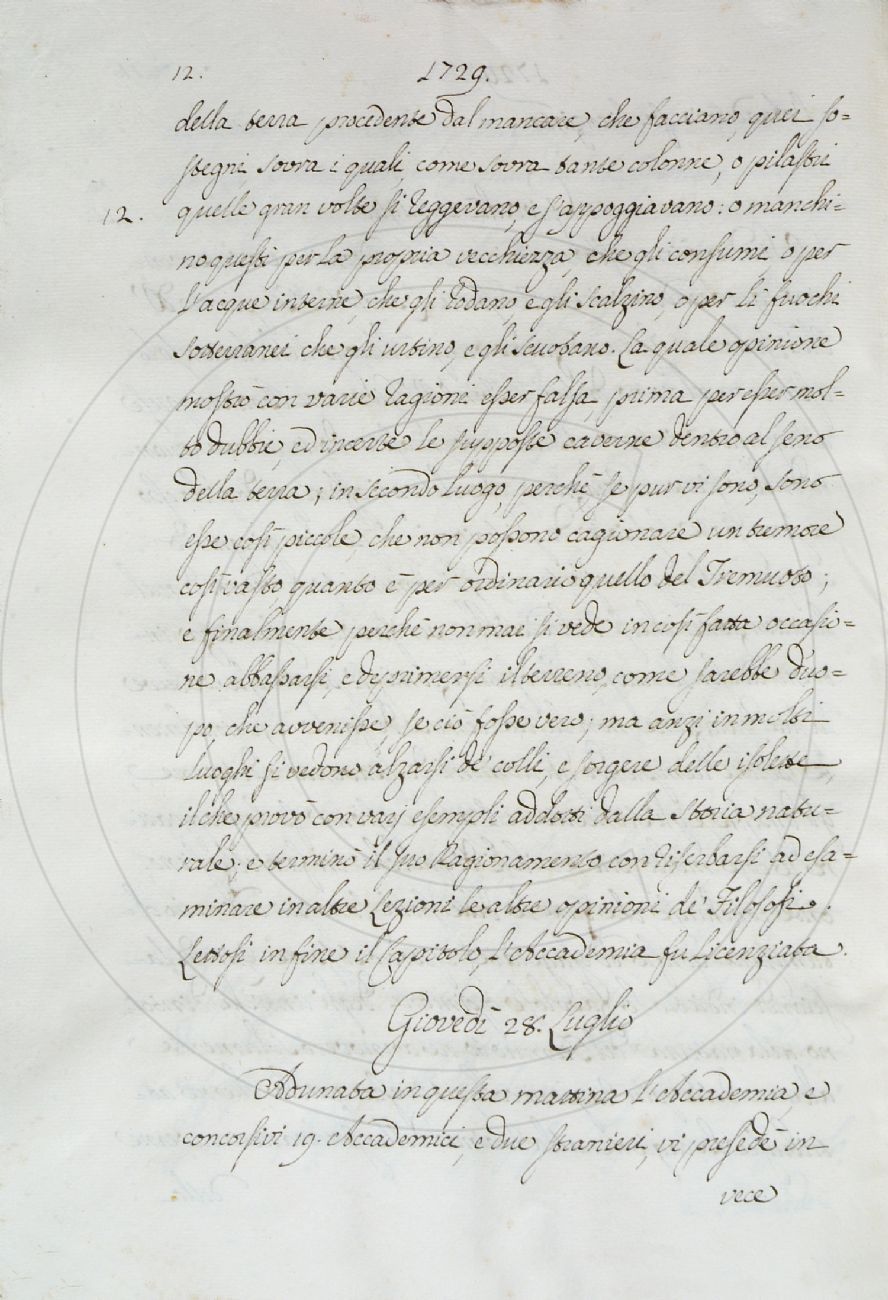 12. 1729.
della terra procedente dal mancare, che facciano, quei so=
stegni sovra i quali, come sovra tante colonne, o pilastri
12. quelle gran volte si reggevano, e s'appoggiavano: o manchi=
no questi per la propria vecchiezza, che gli consumi, o per
l'acque interne, che gli rodano, e gli scalzino, o per li fuochi
sotterranei che gli urtino, e gli scuotano. La quale opinione
mostrò con varie ragioni esser falsa, prima per esser mol=
to dubbie, ed incerte le supposte caverne dentro al seno
della terra; in secondo luogo, perchè se pur vi sono, sono
esse così piccole, che non possono cagionare un tremore
così vasto quanto è per ordinario quello del Tremuoto;
e finalmente perchè non mai si vede in così fatta occasio=
ne abbassarsi, e deprimersi il terreno, come sarebbe duo=
po, che avvenisse, se ciò fosse vero; ma anzi in molti
luoghi si vedono alzarsi de' colli, e sorgere delle isolette,
il che provò con varj esempli addotti dalla Storia natu=
rale; e terminò il suo Ragionamento con riserbarsi ad esa=
minare in altre Lezioni le altre opinioni de' Filosofi.
Lettosi in fine il Capitolo, l'Accademia fu licenziata.
Giovedì 28. Luglio
Adunata in questa mattina l'Accademia, e
concorsivi 19. Accademici, e due stranieri, vi presedè in
vece